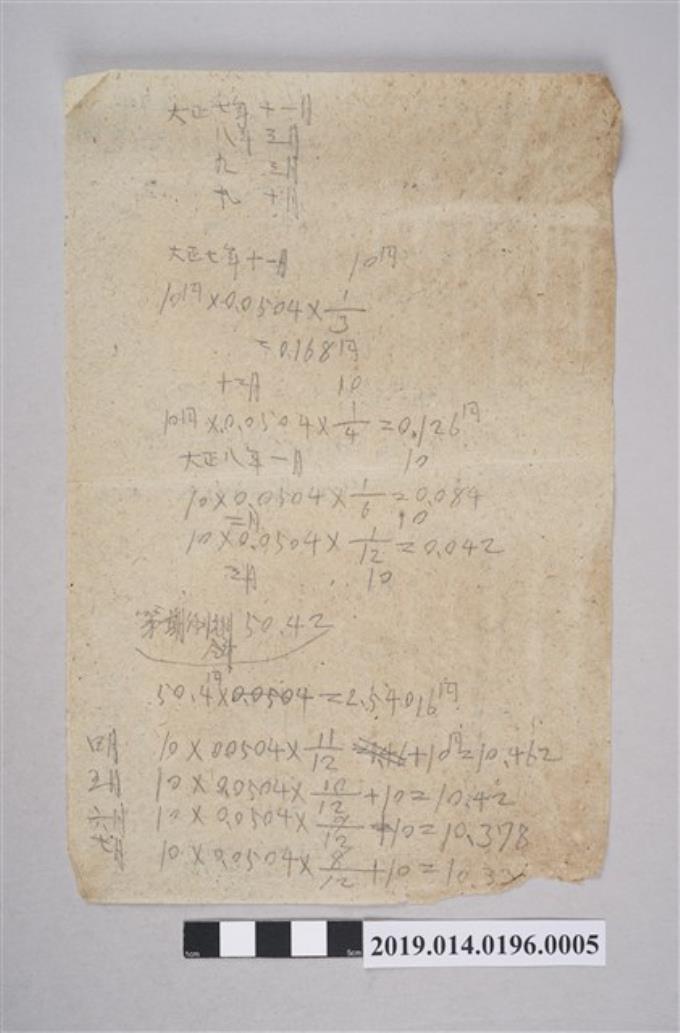 大正七年十一月
八年三月
九 三月
九 十月
大正七年十一月 10円
10円×0.0504×1/3
=0.168円
十二月 10
10円×0.0504×1/4=0.126円
大正八年一月 10
10×0.0504×1/6=0.084
二月 10
10×0.0504×1/12=0.042
三月 10
第 期 50.42
50.4円×0.0504=2.54016円
四月 10×00504×11/12 +10円=10.462
五月 10×0.0504×10/12+10=10.42
六月 10×0.0504×9/12+10=10.378
七月 10×0.0504×8/12+10=10.33
5cm 5cm
2019.014.0196.0005